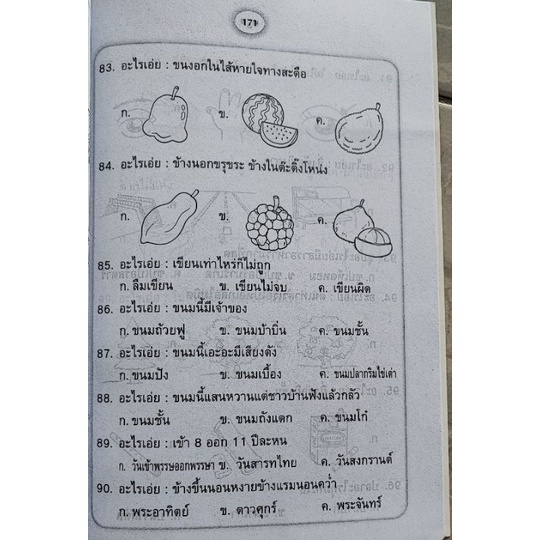 171
83. อะไรเอ่ย : ขนงอกในไส้หายใจทางสะดือ
ก. ข. ค.
84. อะไรเอ่ย : ข้างนอกขรุขระ ข้างในต๊ะติ๊งโหน่ง
ก. ข. ค.
85. อะไรเอ่ย : เขียนเท่าไหร่ก็ไม่ถูก
ก. ลืมเขียน ข. เขียนไม่จบ ค. เขียนผิด
86. อะไรเอ่ย : ขนมนี้มีเจ้าของ
ก. ขนมถ้วยฟู ข. ขนมบ้าบิ่น ค. ขนมชั้น
87. อะไรเอ่ย : ขนมนี้เอะอะมีเสียงดัง
ก. ขนมปัง ข. ขนมเบื้อง ค. ขนมปลากริมไข่เต่า
88. อะไรเอ่ย : ขนมนี้แสนหวานแต่ชาวบ้านฟังแล้วกลัว
ก. ขนมชั้น ข. ขนมถังแตก ค. ขนมโก๋
89. อะไรเอ่ย : เข้า 8 ออก 11 ปีละหน
ก. วันเข้าพรรษออกพรรษา ข. วันสารทไทย ค. วันสงกรานต์
90. อะไรเอ่ย : ข้างขึ้นนอนหงายข้างแรมนอนคว่ำ
ก. พระอาทิตย์ ข. ดาวศุกร์ ค. พระจันทร์